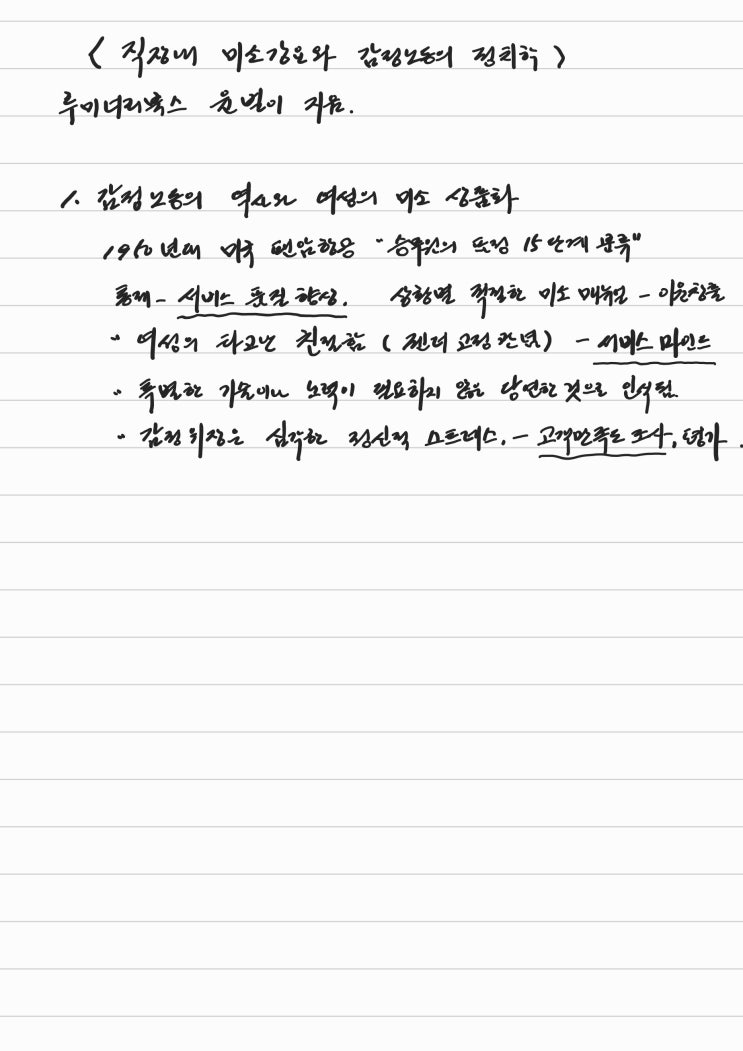 < 직장내 미소강요와 감정노동의 정치학 >
루미너리북스 윤별이 지음.
1. 감정노동의 역사와 여성의 미소 상품화
1960년대 미국 팬암항공 "승무원의 표정 15단계 분류"
통제 - 서비스 품질 향상. 상황별 적절한 미소 매뉴얼 - 이윤창출
" 여성의 타고난 친절함 ( 젠더 고정관념) - 서비스 마인드
" 특별한 기술이나 노력이 필요하지 않은 당연한 것으로 인식됨.
" 감정위장은 심각한 정신적 스트레스. - 고객만족도 조사, 평가.